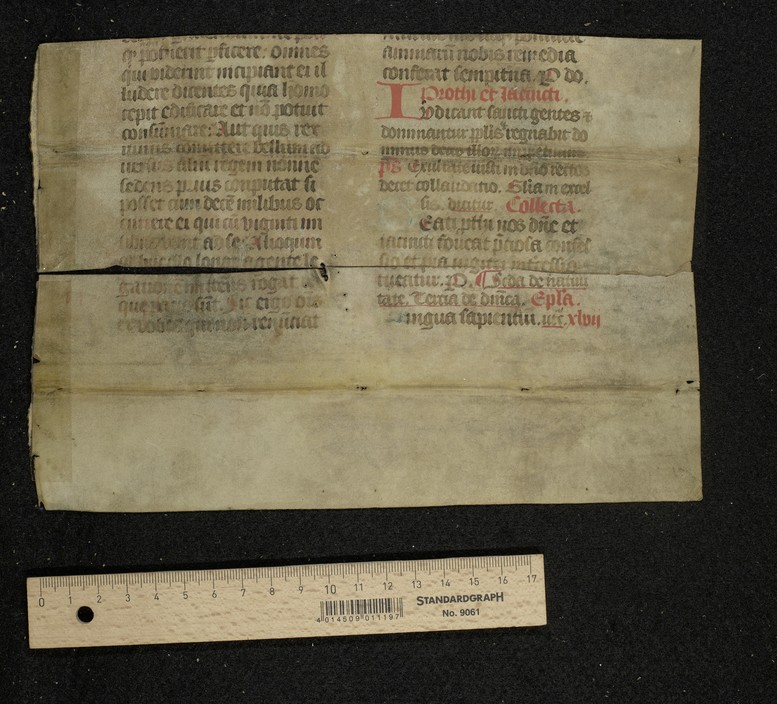 q̨ potuerit ꝑficere. Omnes
qui viderint incipiant ei il
ludere dicentes quia homo
cepit edificare et nō potuit
consūmare. Aut quis rex
iturus comittere bellum ad
uersus aliū regem nonne
sedens prius conputat si
posset cum decē milibus oc
currere ei qui cū viginti mi
libus venit ad se. Alioquin
adhuc illo longe agente le
gationem mittens rogat
que pacis sūt. Sic ergo ois
ex vobis qui non renūciat
animarū nobis remedia
conferat sempitna. P do.
Prothi et Iacincti.
Iudicant sancti gentes ⁊
dominantur pplis regnabit do
minus deus illoꝝ inppetuum
p̄s Exultate iusti in dn̄o rectos
decet collaudatio. Glia in excel
sis. dicitur. Collecta.
Eati pthi nos dn̄e et
iacincti foueat p̄ciosa confes
sio et pia iugiter intercessio
tueatur. P. Seda de natiui
tate. Tercia de dn̄ica. Epla.
ingua sapientiū. xlvij
0 1 2 3 4 5 6 7 8 9 10 11 12 13 14 15 16 17
STANDARDGRAPH
No. 9061
4 014509 011197